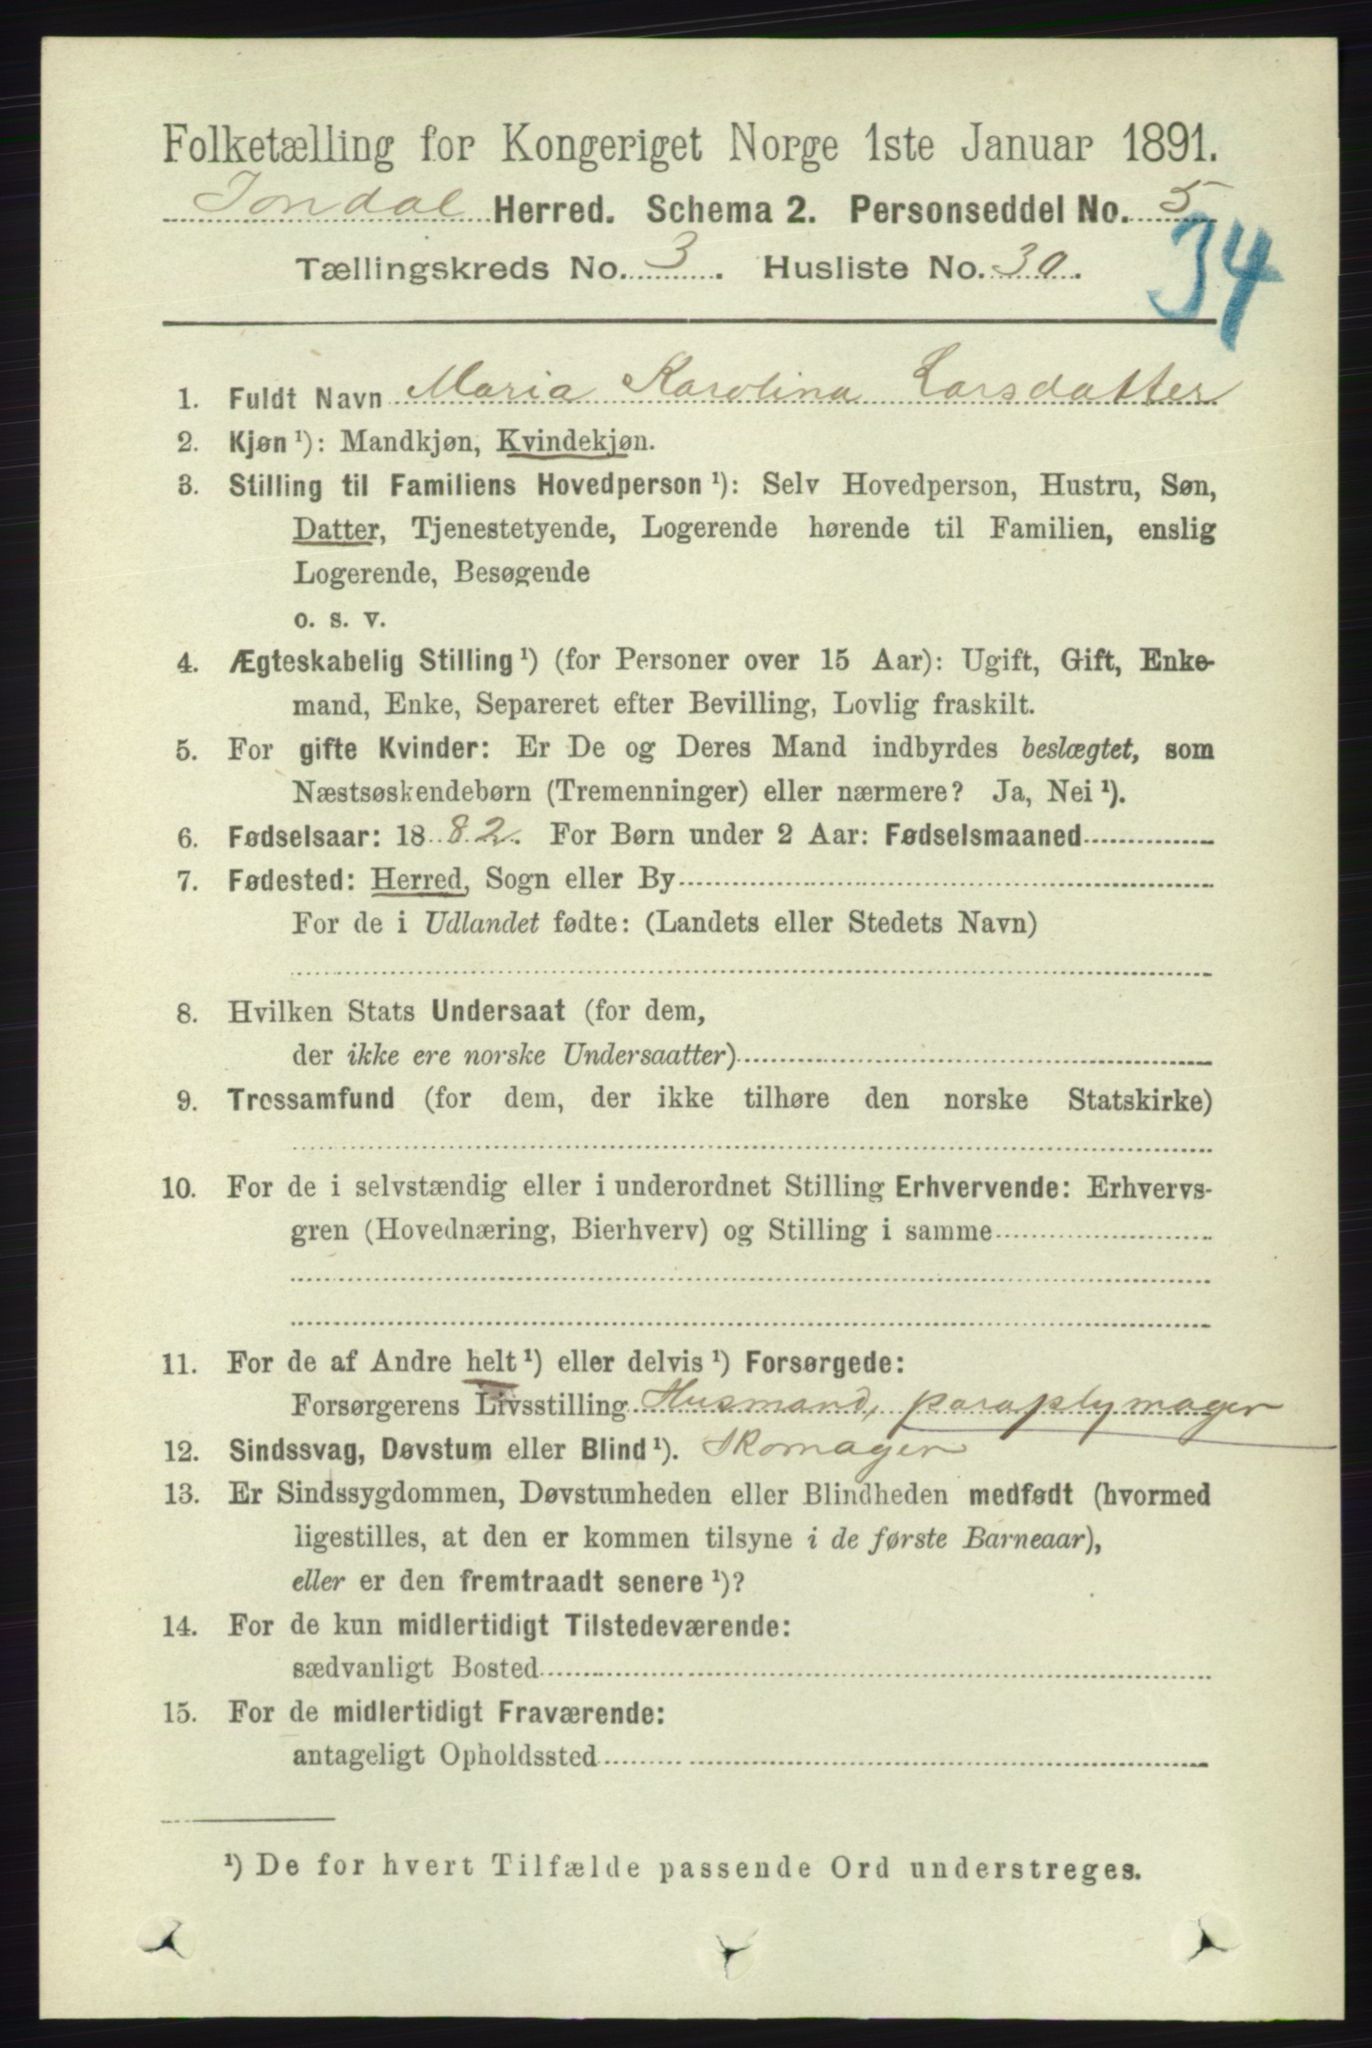 Folketælling for Kongeriget Norge 1ste Januar 1891.
Jondal Herred. Schema 2. Personseddel No. 5
34
Tællingskreds No. 3. Husliste No. 30.
1. Fuldt Navn Maria Karolina Larsdatter
2. Kjøn ¹): Mandkjøn, Kvindekjøn.
3. Stilling til Familiens Hovedperson ¹): Selv Hovedperson, Hustru, Søn,
Datter, Tjenestetyende, Logerende hørende til Familien, enslig
Logerende, Besøgende
o. s. v.
4. Ægteskabelig Stilling ¹) (for Personer over 15 Aar): Ugift, Gift, Enke-
mand, Enke, Separeret efter Bevilling, Lovlig fraskilt.
5. For gifte Kvinder: Er De og Deres Mand indbyrdes beslægtet, som
Næstsøskendebørn (Tremenninger) eller nærmere? Ja, Nei ¹).
6. Fødselsaar: 1882. For Børn under 2 Aar: Fødselsmaaned
7. Fødested: Herred, Sogn eller By
For de i Udlandet fødte: (Landets eller Stedets Navn)
8. Hvilken Stats Undersaat (for dem,
der ikke ere norske Undersaatter)
9. Trossamfund (for dem, der ikke tilhøre den norske Statskirke)
10. For de i selvstændig eller i underordnet Stilling Erhvervende: Erhvervs-
gren (Hovednæring, Bierhverv) og Stilling i samme
11. For de af Andre helt ¹) eller delvis ¹) Forsørgede:
Forsørgerens Livsstilling Husmand, paraplymager
12. Sindssvag, Døvstum eller Blind ¹). Skomager
13. Er Sindssygdommen, Døvstumheden eller Blindheden medfødt (hvormed
ligestilles, at den er kommen tilsyne i de første Barneaar),
eller er den fremtraadt senere ¹)?
14. For de kun midlertidigt Tilstedeværende:
sædvanligt Bosted
15. For de midlertidigt Fraværende:
antageligt Opholdssted
¹) De for hvert Tilfælde passende Ord understreges.